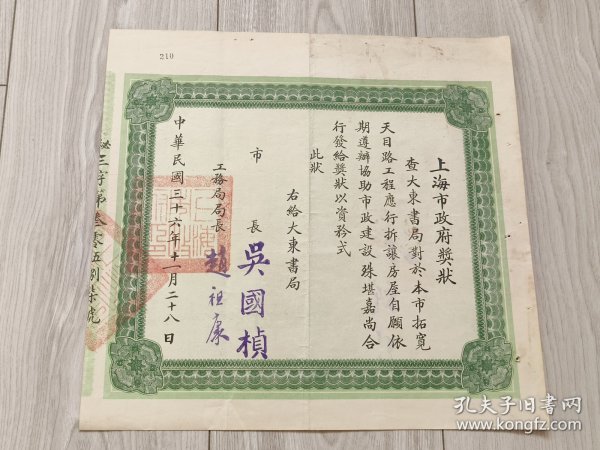 210
上海市政府獎狀
查大東書局對於本市拓寬
天目路工程應行拆讓房屋自願依
期遵辦協助市政建設殊堪嘉尚合
行發給獎狀以資矜式
此狀
右給大東書局
市長 吳國楨
工務局局長 趙祖康
中華民國三十六年十一月二十八日
孔夫子旧书网